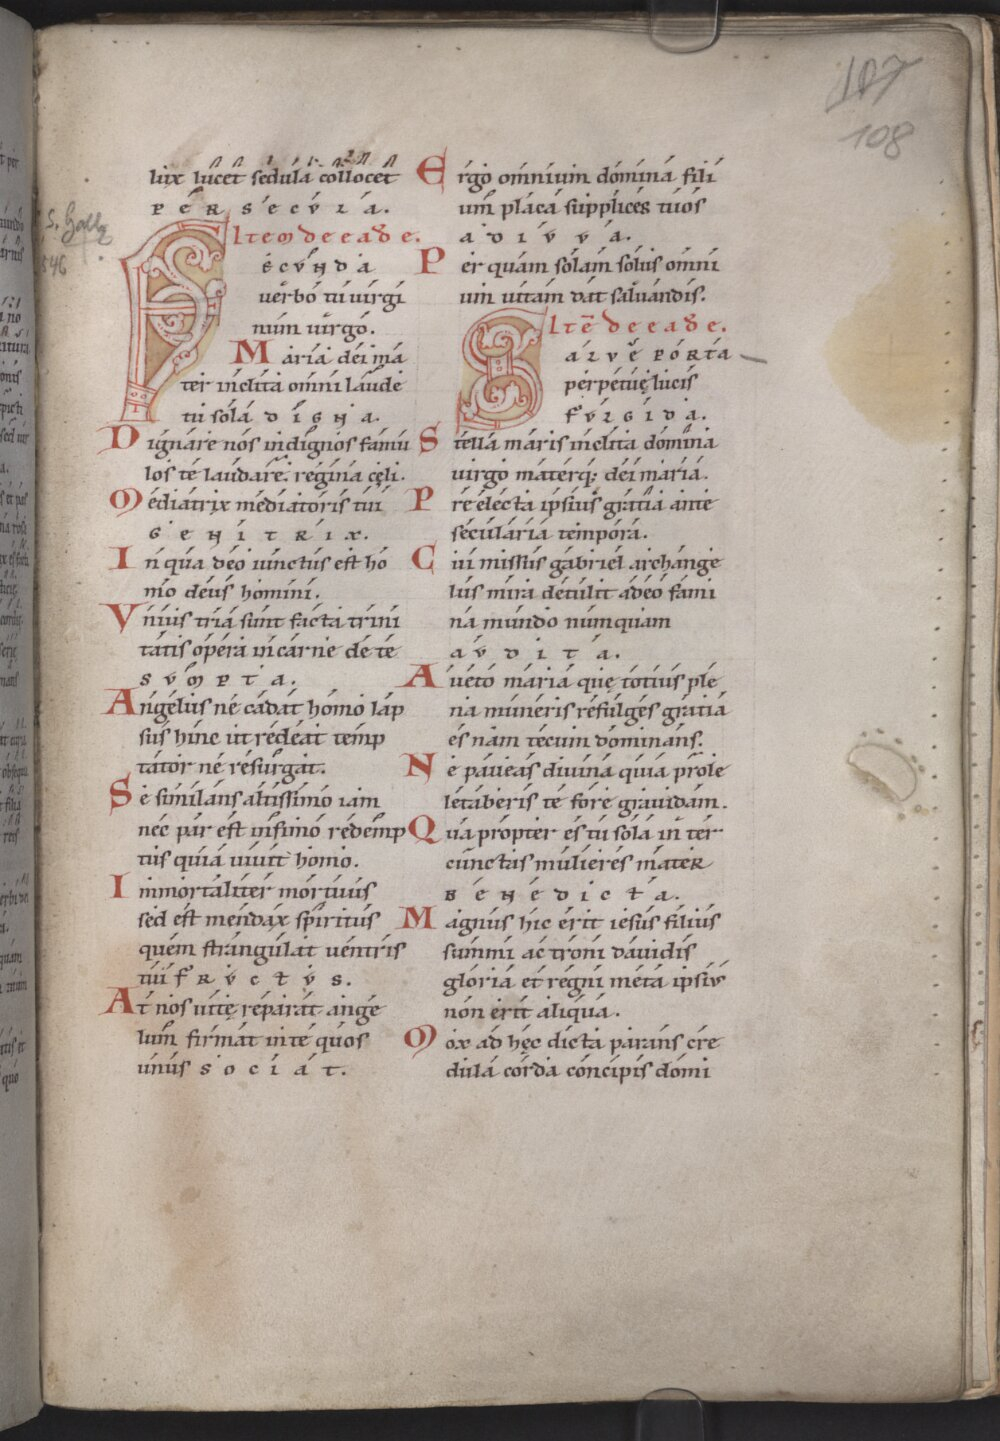 107
108
lux lucet sedula collocet
PER SECULA.
S. Galle
546
Item de eade.
FECUNDA
verbo tu virgi
num virgo.
Maria dei ma
ter inclita omni laude
tu sola DIGNA.
Dignare nos indignos famu
los te laudare. regina cęli.
Mediatrix mediatoris tui
GENITRIX.
In qua deo iunctus est ho
mo deus homini.
Unius tria sunt facta trini
tatis opera in carne de te
SUMPTA.
Angelus ne cadat homo lap
sus hinc ut redeat temp
tator ne resurgat.
Se similans altissimo iam
nec par est infimo redemp
tus quia vivit homo.
Inmortaliter mortuus
sed est mendax spiritus
quem strangulat ventris
tui FRUCTUS.
At nos vitę reparat ange
lum firmat in te quos
unus SOCIAT.
Ergo omnium domina fili
um placa supplices tuos
ADIUVA.
Per quam solam solus omni
um vitam dat salvandis.
Itē de eade.
SALVE PORTA
perpetuę lucis
FULGIDA.
Stella maris inclita domina
virgo materq; dei maria.
Preelecta ipsius gratia ante
secularia tempora.
Cui missus gabriel archange
lus mira detulit adeo fami
na mundo numquam
AUDITA.
Aveto maria quę totius ple
na muneris refulges gratia
es nam tecum dominans.
Ne paveas divina quia prole
letaberis te fore gravidam.
Qua propter es tu sola in ter
cunctas mulieres mater
BENEDICTA.
Magnus hic erit iesus filius
summi ac troni davidis
gloria et regni meta ipsius
non erit aliqua.
Mox ad hęc dicta parans cre
dula corda concipis domi